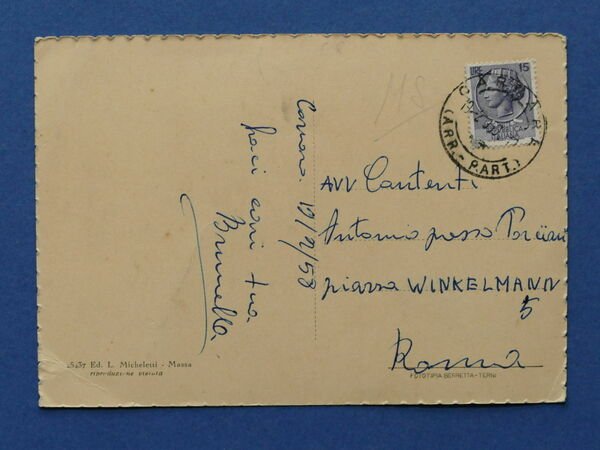 Carrara 19/7/58
baci cari tua
Brunella
115
LIRE 15
CARRARA
(ARR.-PART.)
AVV Cantenti
Antonio presso
piazza WINKELMANN
5
Roma
Ed. L. Micheletti - Massa
riproduzione vietata
FOTOTIPIA BERRETTA-TERNI